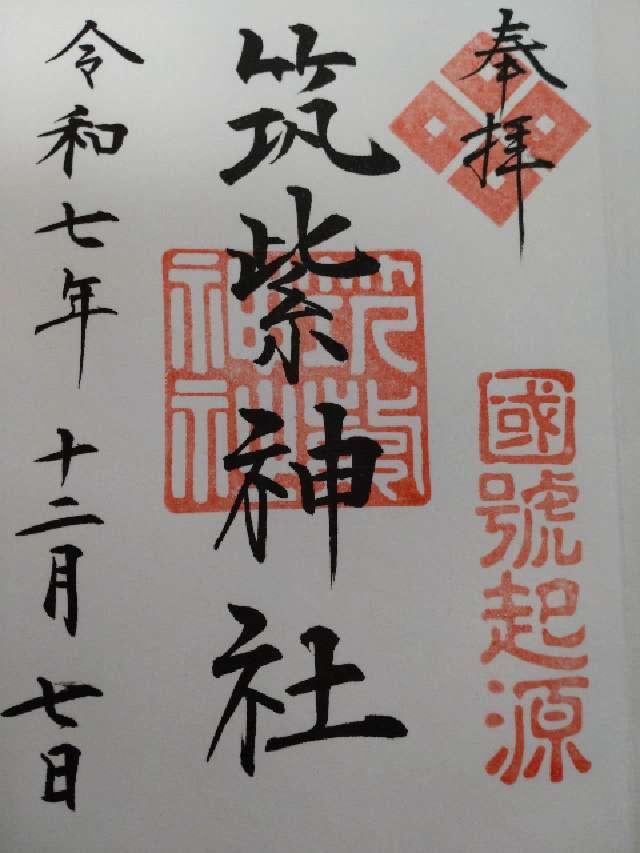 奉拝
國號起源
筑紫神社
筑紫神社
令和七年 十二月 七日